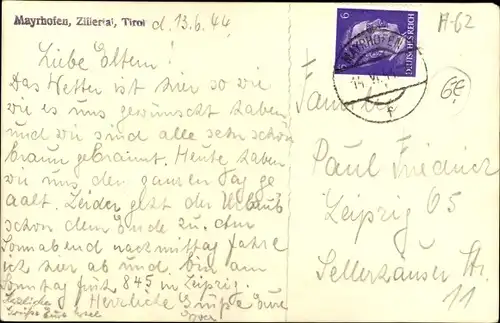 Mayrhofen, Zillertal, Tirol d. 13.6.44
Liebe Eltern!
Das Wetter ist hier so wie
wie es uns gewünscht haben
und wir sind alle sehr schön
braun gebrannt. Heute haben
wir uns den ganzen Tag ge
aalt. Leider geht der Urlaub
schon dem Ende zu. Am
Sonnabend nachmittag fahre
ich hier ab und bin am
Sonntag früh 845 in Leipzig.
Herzliche Grüße Eure
Herzliche
Grüße Eure
6
DEUTSCHES REICH
MAYRHOFEN
Familie
Paul Friedrich
Leipzig O5
Sellerhäuser Str.
11
A-62
6€